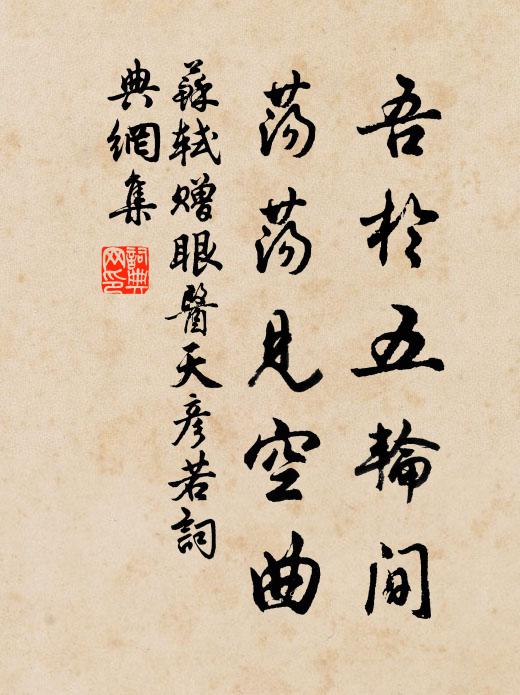 吾於五輪間
荡荡見空曲
蘇軾赠眼醫天彦若詞
典網集
詞典
网印